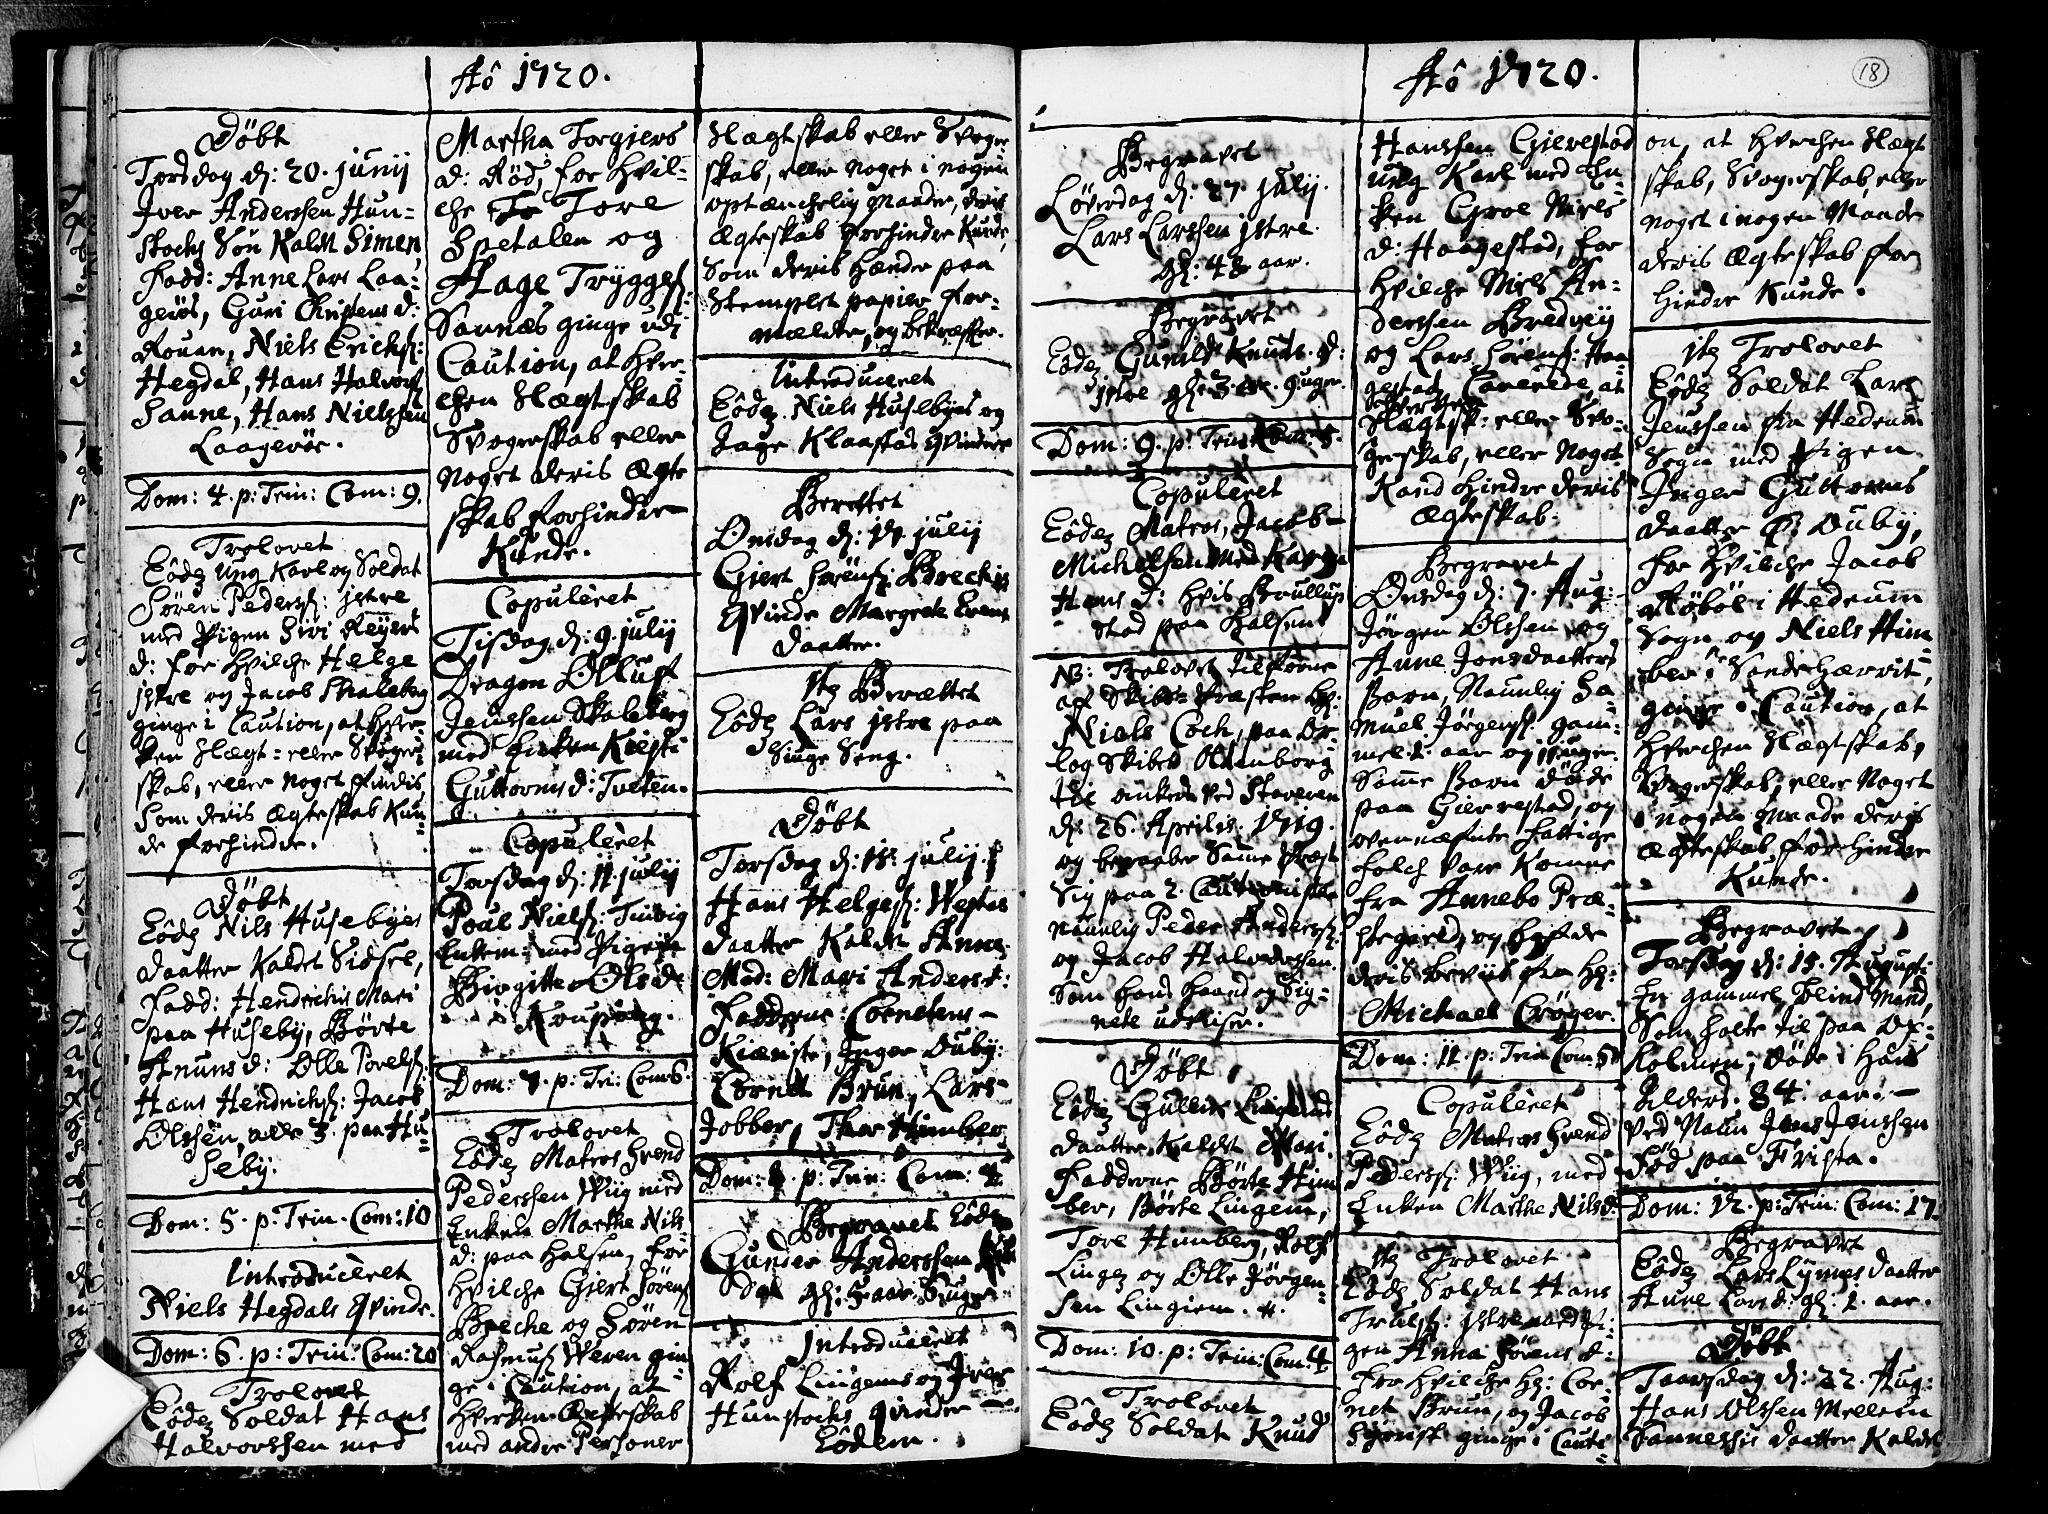 Aô 1720.
Döbt
Torsdag d: 20. junij
Iver Anderssen Hun-
stocks Sön Kaldt Simen,
Fadd: Anne Lars Laa-
geiös, Guri Christens d:
Rouar, Niels Erichs:
Hegdal, Hans Halvors:
Sanne, Hans Nielssen
Laageröe.
Dom: 4. p: Trin: Com: 9.
Trolovet
Eôdz ung Karl og Soldat
Sören Peders: jstre
med Pigen Siri Reyers
d: for hvilche Helge
jstre og Jacob Skaleberg
ginge i Caution, at hver-
ken Slægt- eller Svoger-
skab, eller noget findis,
Som deris Ægteskab Kun-
de forhindre.
Döbt
Eôdz Nils Husebyes
daatter Kaldet Sidsel,
Fadd: Hendrichs Mari
paa Huseby, Börte
Anuns d: Olle Povels:
Hans Hendrichs: Jacob
Olssen, alle 3. paa Hu-
seby.
Dom: 5. p: Trin. Com: 10
Introducêret
Niels Hegdals Qvinde.
Dom: 6. p: Trin: Com: 20
Trolovet
Eôdz Soldat Hans
Halvorssen med
Martha Torgiers
d: Röd, for hvil-
che Tore
Spetalen og
Aage Trygges:
Sannæs ginge udi
Caution, at hver-
chen Slægtskab
Svogerskab eller
Noget deris Ægte
skab forhindre
Kunde.
Copulêret
Tisdag d: 9. julij
Dragon Olluf
Jenssen Skaleberg
med Enken Kiersti
Guttorms d: Tvêten.
Copulêret
Torsdag d: 11 julij
Poul Niels:
Enkem: med Pigen
Birgitte Ols d:
Koupang.
Dom: 7. p: Tri: Com: 6.
Trolovet
Eôdz Matros Svend
Pederssen Wiig med
Enken Marthe Nils
d: paa Halsen, for
hvilche Giert Sörens
Breche og Sören
Rasmus: Weren gin
ge i Caution, at
hverken Ægteskab
med andre Personer
Slægtskab eller Svoger
skab, eller noget i nogen
optænchelig Maader, deris
Ægteskab forhindre Kunde,
Som deris hænder paa
Stemplet papier for-
mælder, og bekræfter.
Introduceret
Eôdz. Niels Husebyes og
Jage Klaastad Qvinder
Berettet
Onsdag d: 17. julij
Giert Sörens: Brechis
Qvinde Margrete Evens
daatter.
Itz Berættet
Eôdz Lars jstre paa
Siuge Seng.
Döbt
Torsdag d: 18. julij.
Hans Helges: Westas
daatter Kaldt Anne.
Mod: Mari Anders d:
Fadderne: Cornetens
Kiæriste, Inger Ouby:
Cornet Brun, Lars
Jobber, Thor Himber
Dom: 8. p: Trin: Com: 4.
Begravet Eôdz
Gunder Anderssen
dal gl: 5 aar
Introduceret
Rolf Lingems og Iver
Hunstochs Qvinder
Eôdem.
Aô 1720.
18
Begravet
Löverdag d: 27. julij.
Lars Larssen jstre.
gl: 48 aar.
Begravet
Eôdz Gunild Knuds. d:
jstre gl: 3. 9 uger.
Dom: 9. p: Trin: Com: 8.
Copulêret
Eôdz Matros, Jacob
Michelsen med Karen
Hans d: hvis Brullup
stod paa Halsen
NB: Trolovet tilforne
af Skibs-Præsten Hr:
Niels Coch, paa Or-
log Skibet Oldenborg
til ankers ved Staveren
d: 26. Aprilis. 1719.
og beraaber Samme Præst
Sig paa 2. Cautionister
Nemlig Peder Anders:
og Jacob Halvorssen.
Som hans haand og Sig-
nete udviser.
Döbt
Eôdz Gullich Lingems
daatter Kaldt Mari.
Fadderne Börte Him
ber, Börte Lingem,
Tore Himberg, Rolf
Lingez og Olle Jörgen-
sen Lingiem.
Dom: 10. p: Trin: Com: 4.
Trolovet
Eôdz Soldat Knud
Hanssen Gierestad
ung Karl med En-
ken Groe Niels
d: Haagestad, for
hvilche Niels An-
derssen Bredvej
og Lars Sörens: Haa
gestad, Caverede, at
Slægtsk: eller Svo-
gerskab, eller Noget
Kand hindre deris
Ægteskab.
Begravet
Onsdag d: 7. Aug:
Jörgen Olssen og
Anne Jonsdaatters
Barn, Naunlig Sa
muel Jörgens: gam-
mel 1 aar og 11 uger.
Samme Barn döde
paa Gierrestad, og
ovennæfnte fattige
folch vare Komne
fra Annebo Præ-
stegield, og hafde
deris beviis fra Hr:
Michael Cröger.
Dom: 11. p: Trin Com: 5
Copulêret
Eôdz Matros Svend
Peders: Wiig, med
Enken Marthe Nils d:
Itz Trolovet
Eôdz Soldat Hans
Truls: jstre med Pi-
gen Anna Sörens d:
For hvilche Hr: Cor-
net Brun, og Jacob
ginge i Cauti-
on, at hverchen Slægt
skab, Svogerskab eller
noget i nogen Maade
deris Ægteskab for
hindre Kunde.
Itz Trolovet
Eôdz Soldat Lars
Jenssen fra Hedrum
Sogn med Pigen
Inger Guttorms
daatter Ouby,
For hvilche Jacob
Röböl i Hedrum
Sogn og Niels Him
ber i Sandehærrit,
ginge i Caution, at
hverchen Slægtskab,
Svogerskab, eller Noget
i nogen Maade deris
Ægteskab forhindre
Kunde.
Begravet
Torsdag d: 15. Augusti
En gammel blind Mand,
Som holte til paa Ox-
holmen, döde i Hans
Alders. 84. aar.
Ved Naun Jens Jenssen
föd paa Frista.
Dom: 12. p: Trin: Com: 17.
Begravet
Eôdz Lars Lÿnnes daatter
Anne Lars d: gl: 1. aar.
Döbt
Taarsdag d: 22. Aug:
Hans Olssen Mellem
Sannessis daatter Kaldt